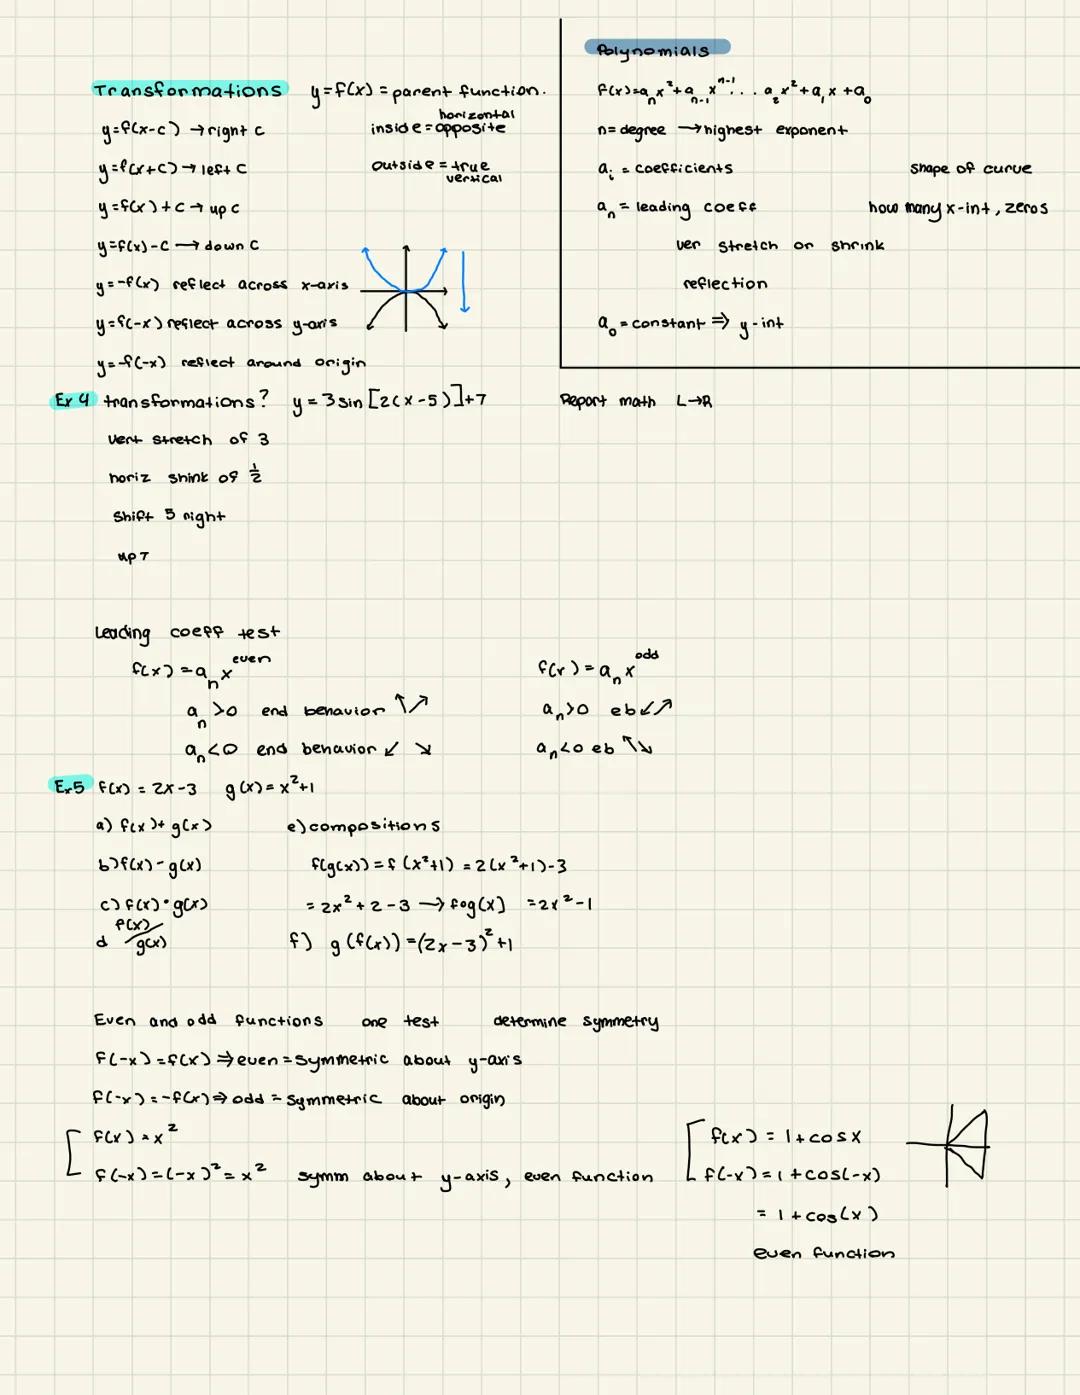 Transformations y=f(x) = parent function.
y=f(x-c) → right c
horizontal
inside = opposite
y=f(x+c) → left c
outside = true
vertical
y=f(x)+c → up c
y=f(x)-c → down c
y=-f(x) reflect across x-axis
y=f(-x) reflect across y-axis
y=-f(-x) reflect around origin
Polynomials
f(x)=aₙx²+aₙ₋₁xⁿ⁻¹... a₂x²+a₁x+a₀
n= degree → highest exponent
aᵢ = coefficients shape of curve
aₙ = leading coeff how many x-int, zeros
ver stretch or shrink
reflection
a₀ = constant ⇒ y-int
Ex 4 transformations? y = 3 sin [2(x-5)]+7 Report math L→R
vert stretch of 3
horiz shink of 1/2
shift 5 right
up 7
Leading coeff test
f(x) = aₙx^even f(x) = aₙx^odd
aₙ >0 end behavior ↑↗ aₙ>0 eb↙↗
aₙ<0 end behavior ↙ ↘ aₙ<0 eb ↖↘
Ex5 f(x) = 2x-3 g(x) = x²+1
a) f(x)+ g(x) e) compositions
b) f(x) - g(x) f(g(x)) = f (x²+1) = 2(x²+1)-3
c) f(x) • g(x) = 2x²+2-3 → fog(x] =2x²-1
d f(x)/g(x) f) g (f(x)) = (2x-3)²+1
Even and odd functions one test determine symmetry
f(-x) = f(x) ⇒ even = symmetric about y-axis
f(-x) = -f(x) ⇒ odd = symmetric about origin
f(x) = x² f(x) = 1+cosx
f(-x) = (-x)² = x² symm about y-axis, even function f(-x) = 1 + cos(-x)
= 1 + cos(x)
even function